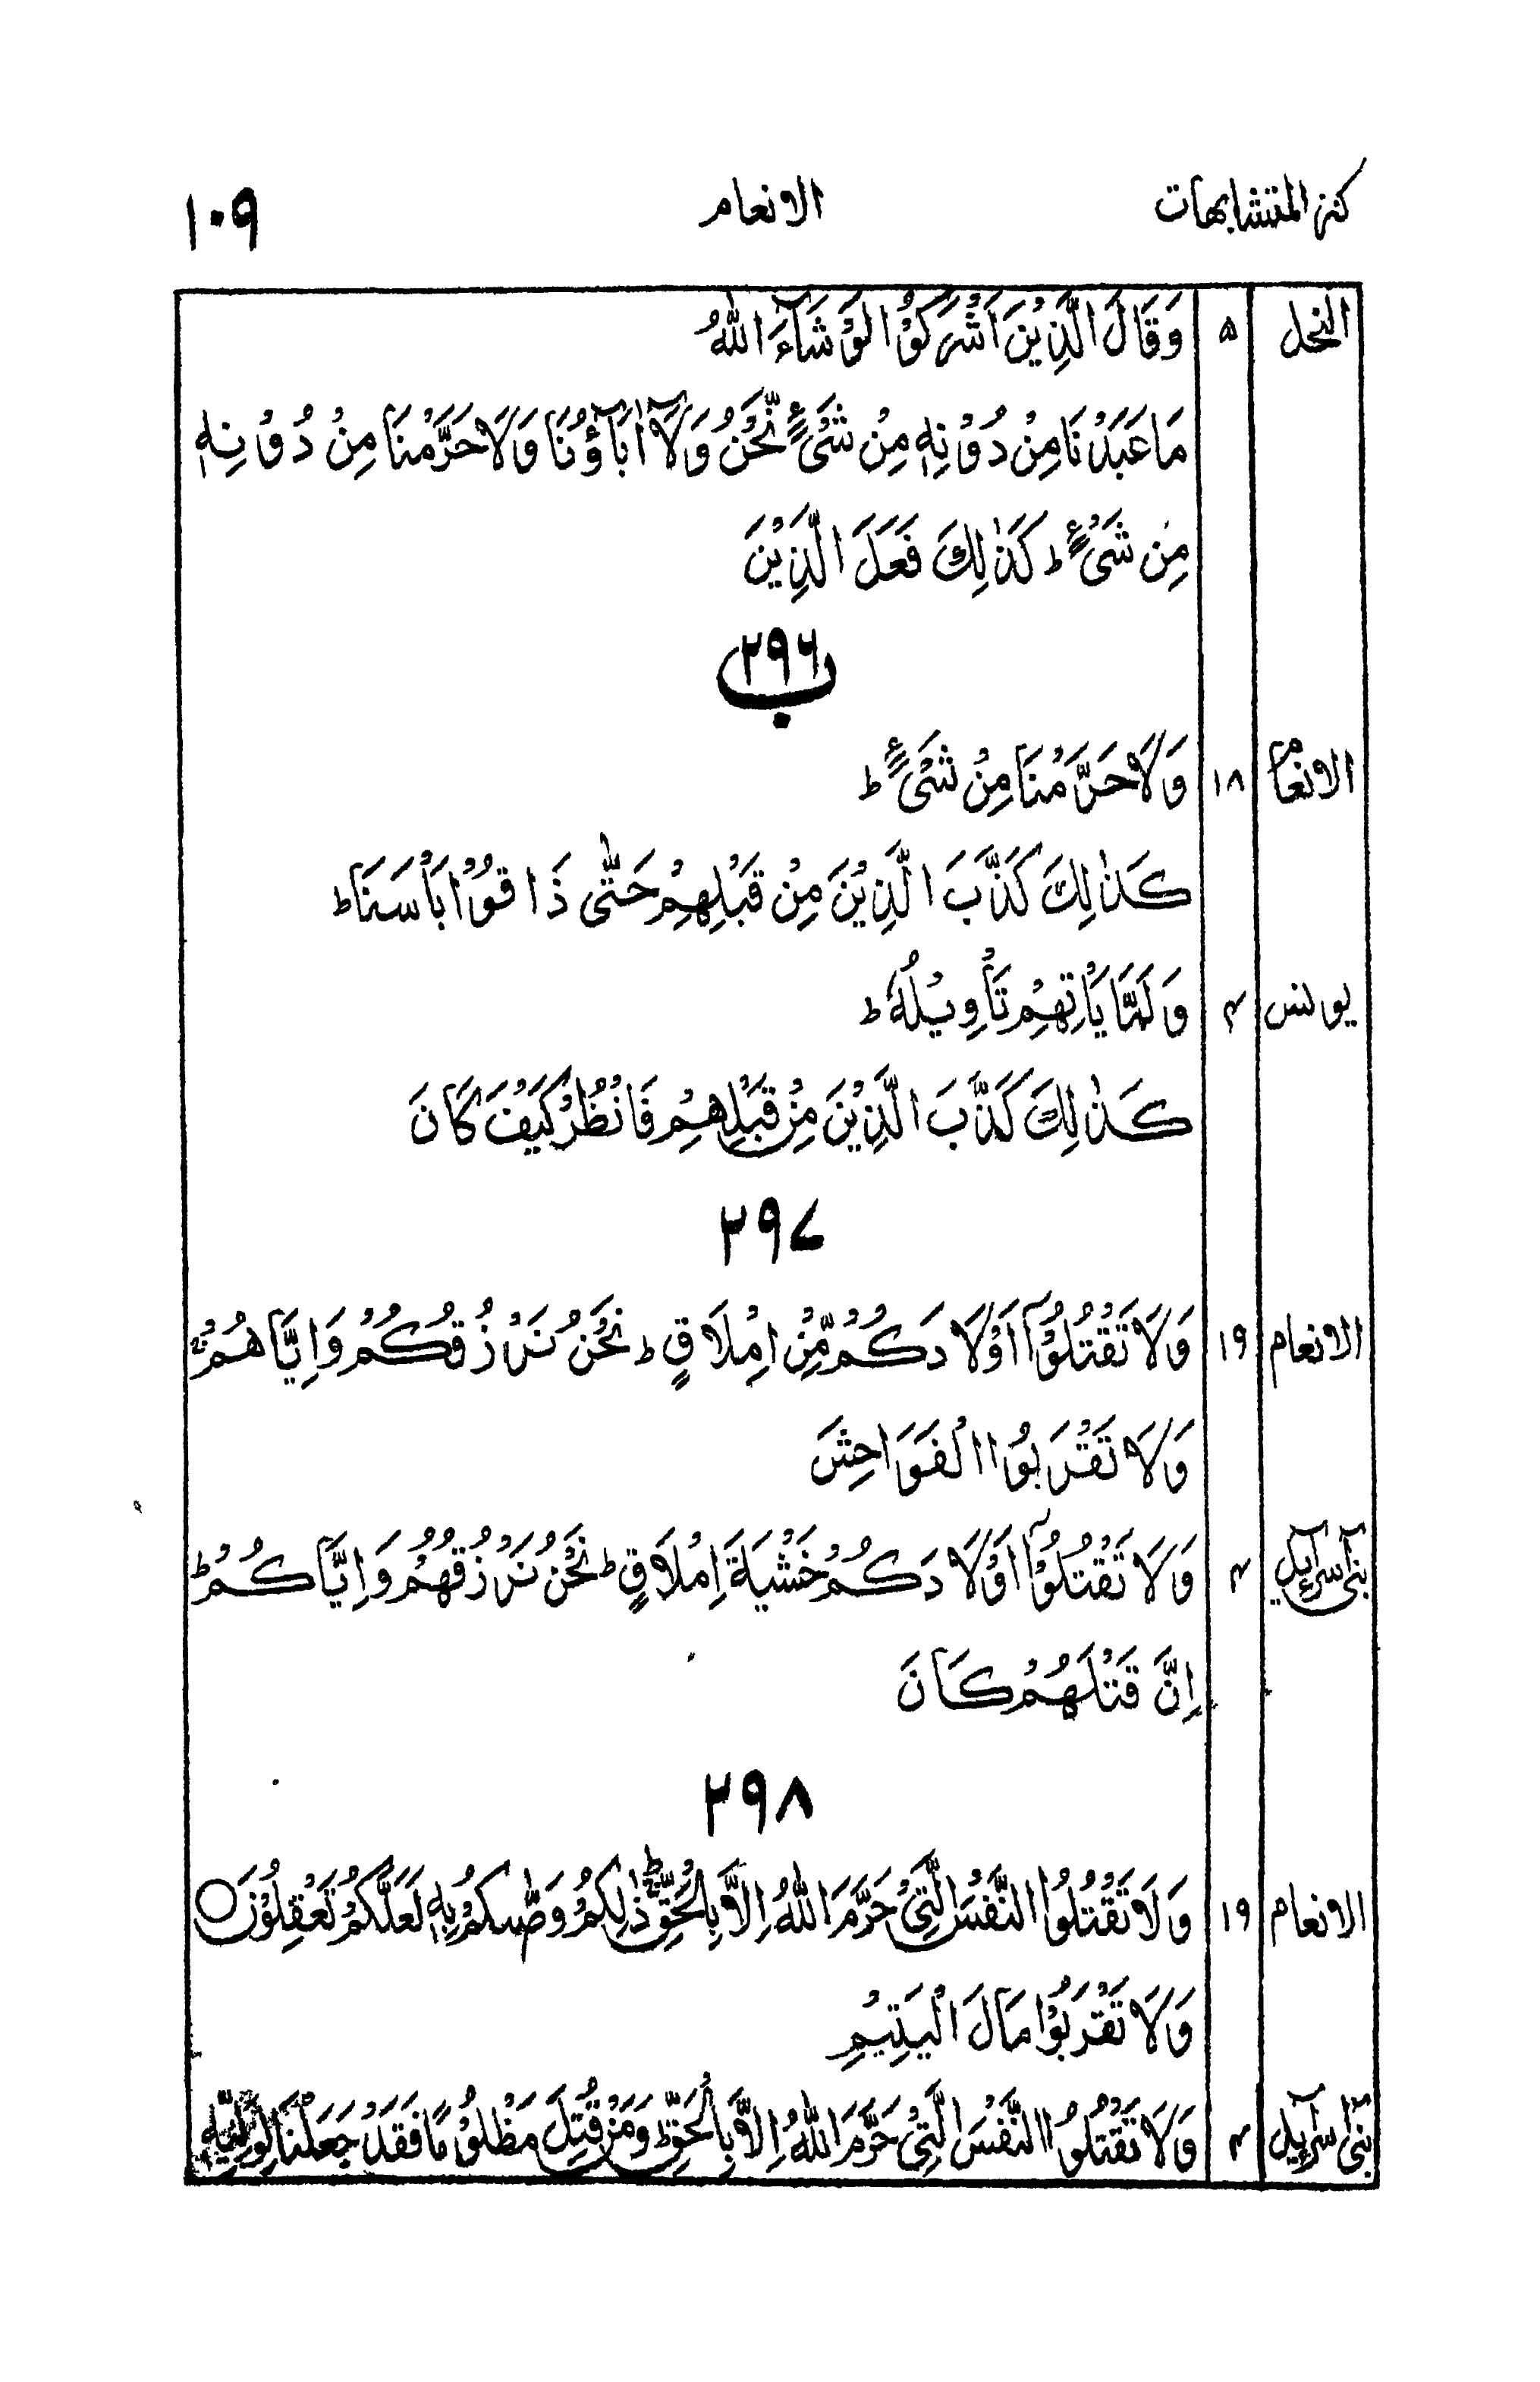 كنز المتشابهات الانعام ١٠٩
النحل ٥ وَقَالَ الَّذِيْنَ اَشْرَكُوْا لَوْ شَآءَ اللّٰهُ
مَا عَبَدْنَا مِنْ دُوْنِهٖ مِنْ شَىْءٍ نَّحْنُ وَلَآ اٰبَآؤُنَا وَلَا حَرَّمْنَا مِنْ دُوْنِهٖ
مِنْ شَىْءٍ ؕ كَذٰلِكَ فَعَلَ الَّذِيْنَ
٢٩٦ ب
الانعام ١٨ وَلَا حَرَّمْنَا مِنْ شَىْءٍ ؕ
كَذٰلِكَ كَذَّبَ الَّذِيْنَ مِنْ قَبْلِهِمْ حَتّٰى ذَاقُوْا بَاْسَنَا ؕ
يونس ٤ وَلَمَّا يَاْتِهِمْ تَاْوِيْلُهٗ ؕ
كَذٰلِكَ كَذَّبَ الَّذِيْنَ مِنْ قَبْلِهِمْ فَانْظُرْ كَيْفَ كَانَ
٢٩٧
الانعام ١٩ وَلَا تَقْتُلُوْٓا اَوْلَادَكُمْ مِّنْ اِمْلَاقٍ ؕ نَحْنُ نَرْزُقُكُمْ وَاِيَّاهُمْ ۚ
وَلَا تَقْرَبُوا الْفَوَاحِشَ
بنىٓ اسرآءيل ٤ وَلَا تَقْتُلُوْٓا اَوْلَادَكُمْ خَشْيَةَ اِمْلَاقٍ ؕ نَحْنُ نَرْزُقُهُمْ وَاِيَّاكُمْ ؕ
اِنَّ قَتْلَهُمْ كَانَ
٢٩٨
الانعام ١٩ وَلَا تَقْتُلُوا النَّفْسَ الَّتِىْ حَرَّمَ اللّٰهُ اِلَّا بِالْحَقِّ ؕ ذٰلِكُمْ وَصّٰىكُمْ بِهٖ لَعَلَّكُمْ تَعْقِلُوْنَ ○
وَلَا تَقْرَبُوْا مَالَ الْيَتِيْمِ
بنىٓ اسرآءيل ٤ وَلَا تَقْتُلُوا النَّفْسَ الَّتِىْ حَرَّمَ اللّٰهُ اِلَّا بِالْحَقِّ ؕ وَمَنْ قُتِلَ مَظْلُوْمًا فَقَدْ جَعَلْنَا لِوَلِيِّهٖ